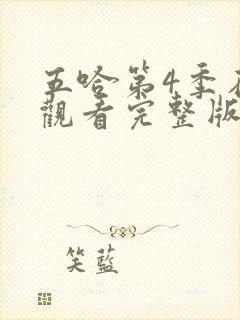 五哈第4季在
觀看完整版
笑藍